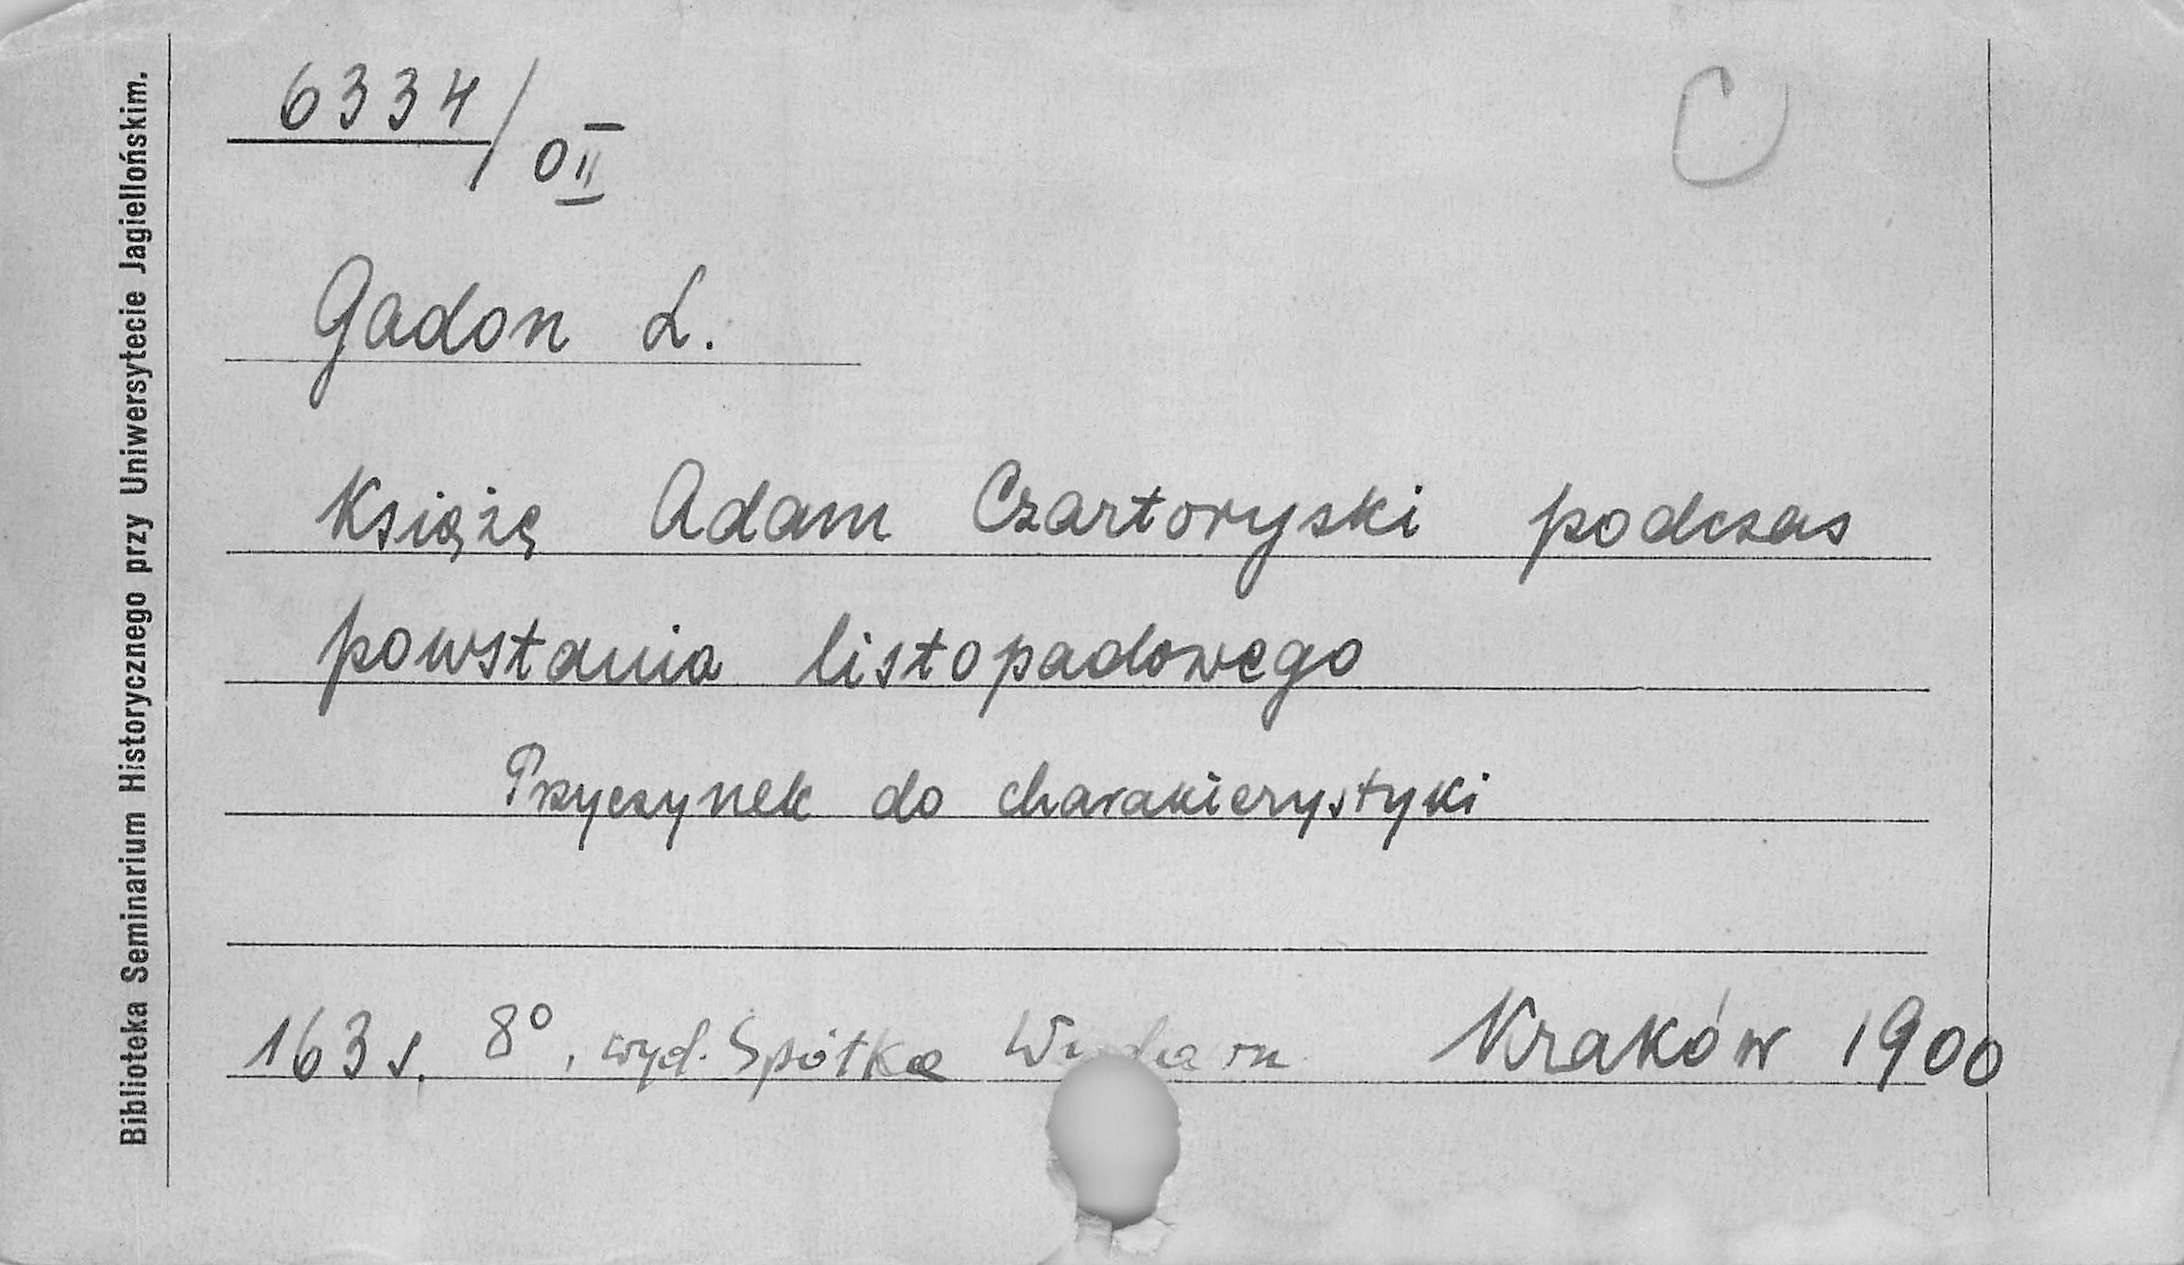 Biblioteka Seminarium Historycznego przy Uniwersytecie Jagiellońskim.
6334/0II
C
Gadon L.
Książę Adam Czartoryski podczas
powstania listopadowego
Przyczynek do charakterystyki
163 s. 8°, wyd. Spółka Kraków 1900